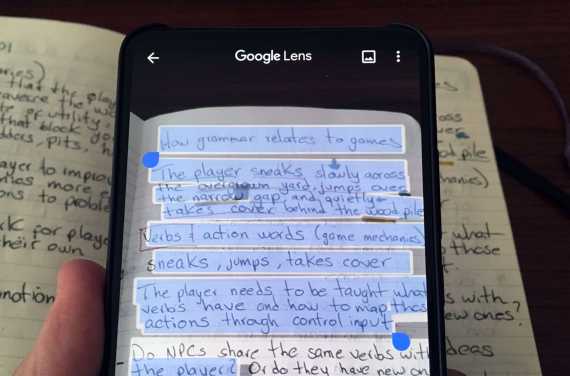 Google Lens
How grammar relates to games
The player sneaks slowly across
the overgrown yard, jumps over
the narrow gap, and quietly
takes cover behind the wood pile
Verbs & action words (game mechanics)
sneaks, jumps, takes cover
The player needs to be taught what
verbs have and how to map those
actions through control input
Do NPCs share the same verbs with
the player? Or do they have new on
that the play
of utility
that block
pits, h
ayer to improv
more e
to proble
for playe
their own
notion
pile
what
those
with
new ones?
ideas